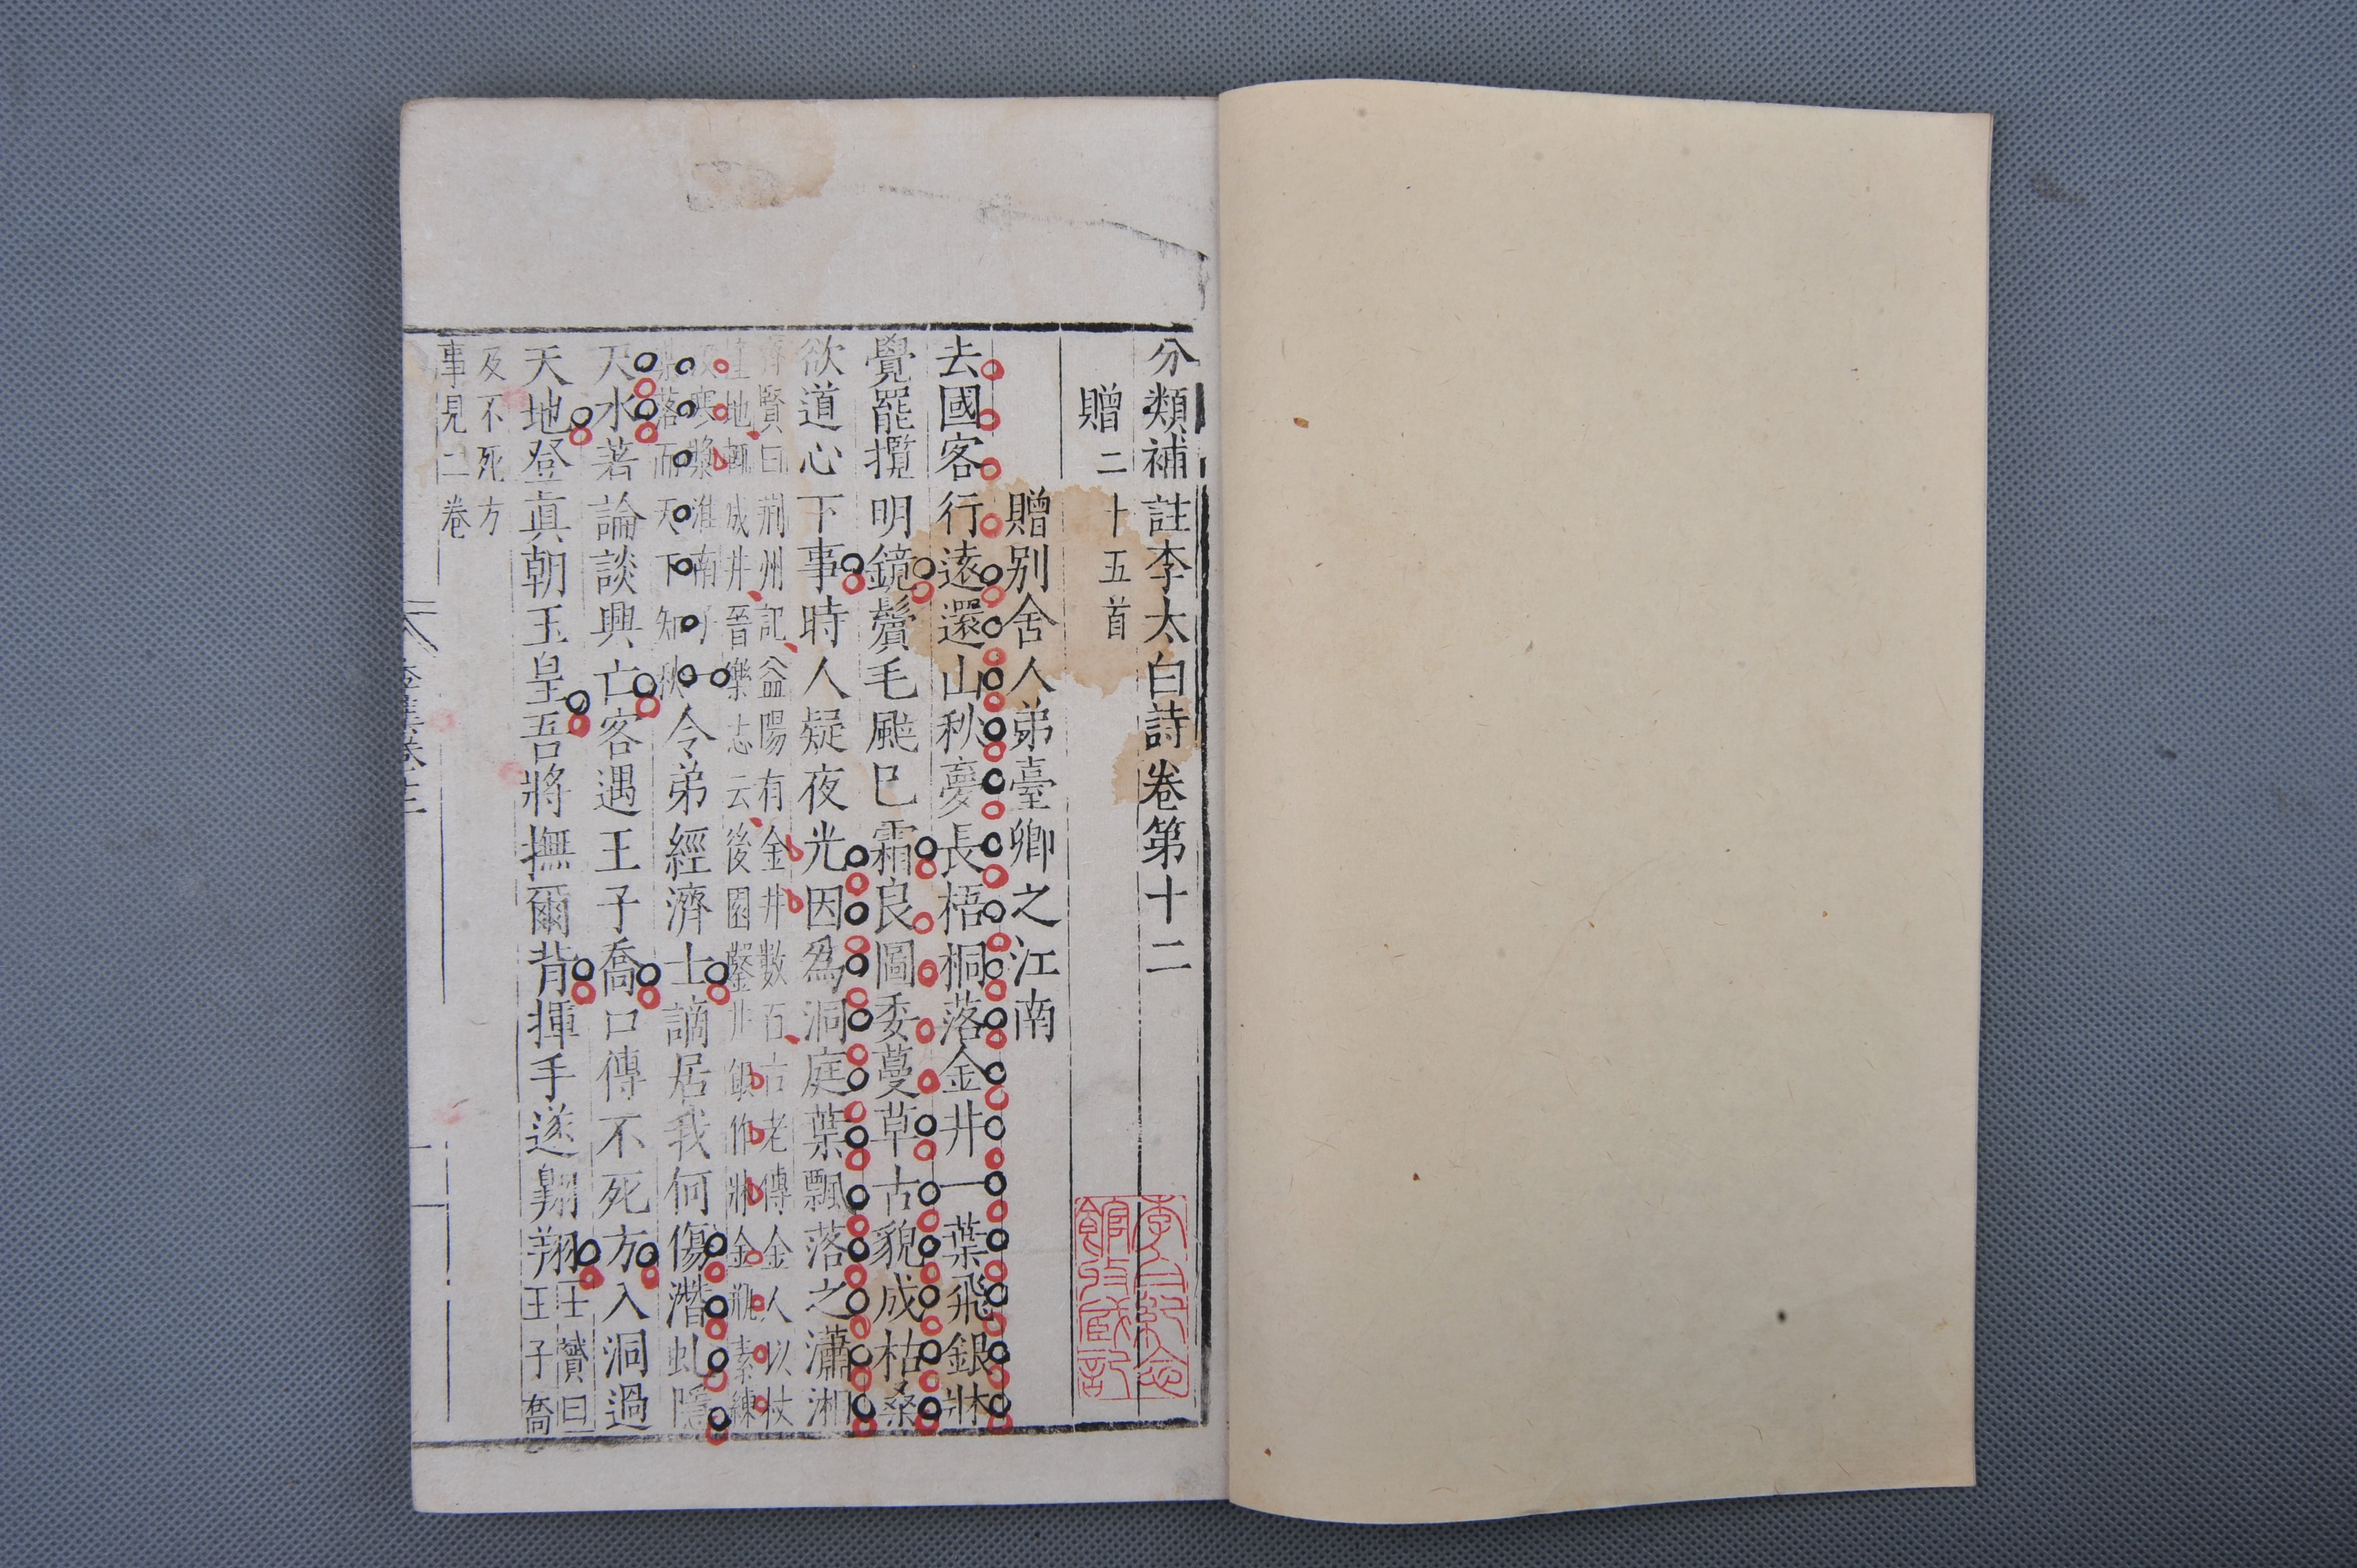 分類補註李太白詩卷第十二
贈二十五首
贈别舍人弟臺卿之江南
去國客行遠還山秋夢長梧桐落金井一葉飛銀牀
覺罷攬明鏡鬢毛颯巳霜良圖委蔓草古貌成枯桑
欲道心下事時人疑夜光因爲洞庭葉飄落之瀟湘
齊賢曰荆州記益陽有金井數百古老傳金人以杖
撞地輒成井晉樂志云後園鑿井銀作牀金瓶素練
汲寒漿淮南子
葉落而天下知秋
令弟經濟士謫居我何傷潛虬隱
尺水著論談興亡客遇王子喬口傳不死方入洞過
天地登眞朝玉皇吾將撫爾背揮手遂翺翔
士贇曰
王子喬
及不死方
事見二卷
李白紀念
館收藏記